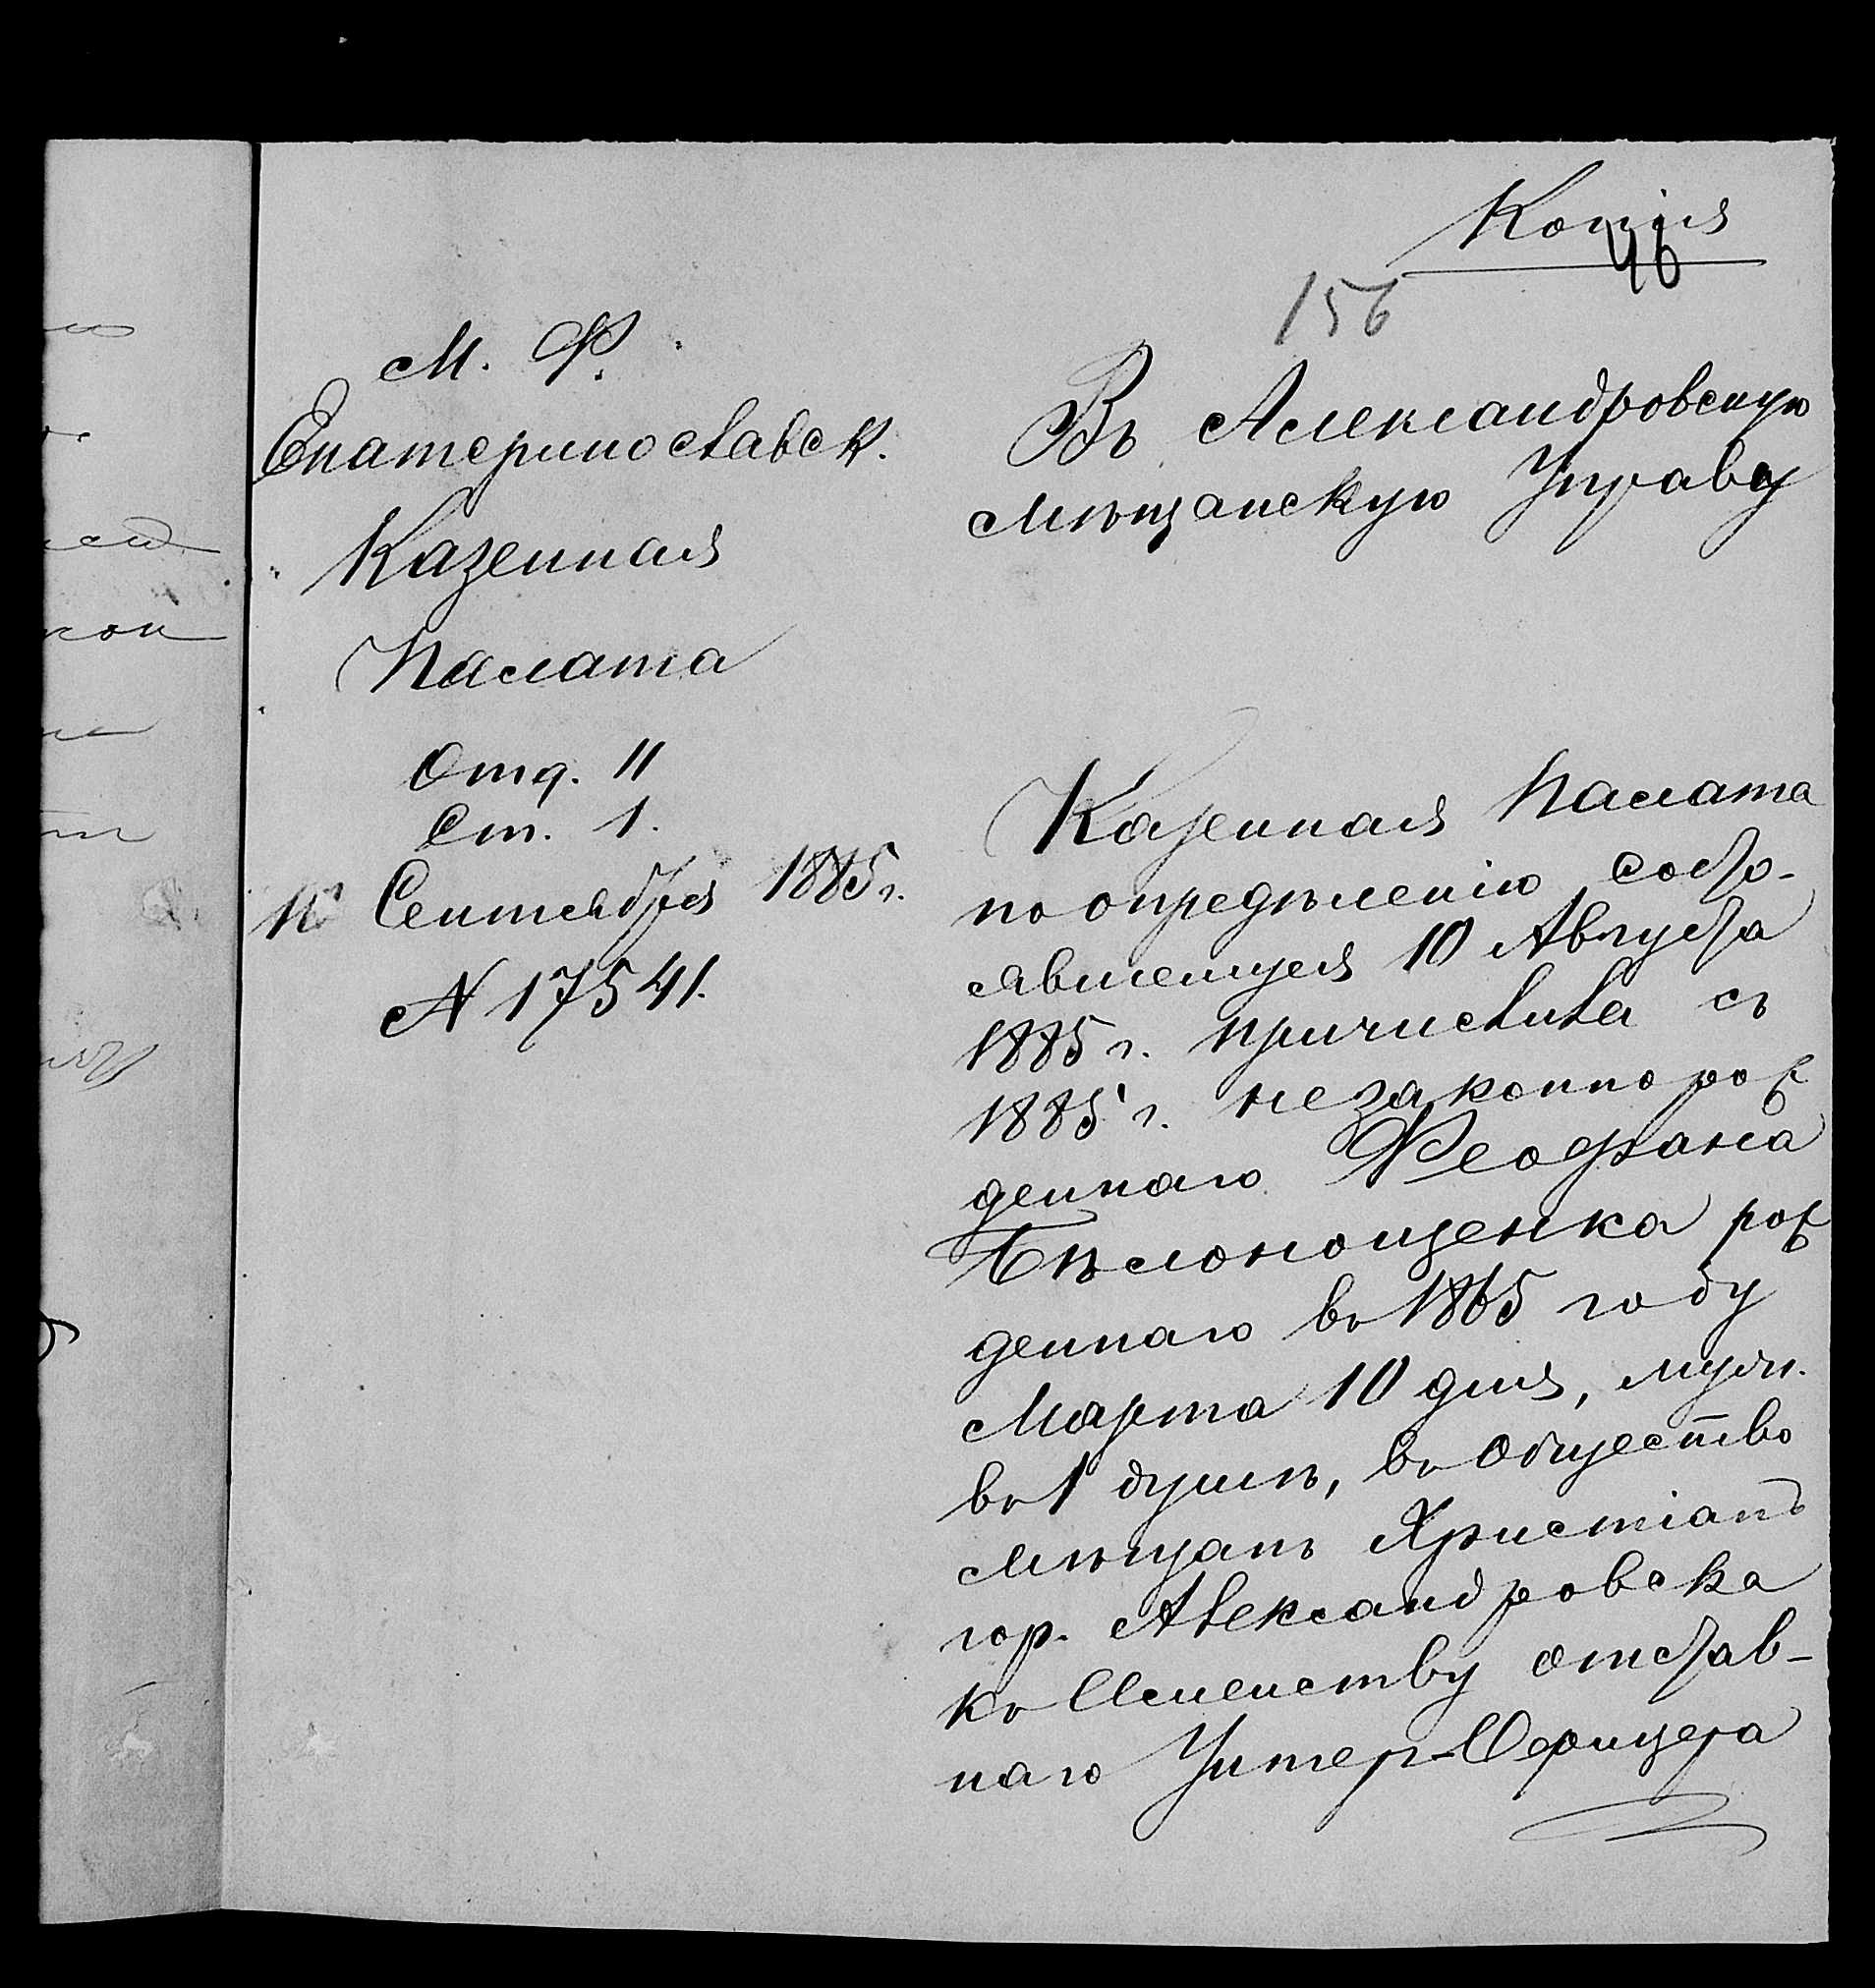 Копія
46
156
М. Ф.
Екатеринославск.
Казенная
Палата
Отд. II
Ст. 1.
Сентября 1885 г.
N 17541.
Въ Александровскую
Мѣщанскую Управу
Казенная Палата
по опредѣленію, состо-
явшемуся 10 Августа
1885 г. причислила съ
1885 г. незаконнорож
деннаго Феофана
Бѣлонощенка рож
деннаго въ 1865 году
Марта 10 дня, муж.
въ 1 душѣ, въ общество
мѣщанъ Христіанъ
гор. Александровска
къ Семейству отстав-
наго Унтер-Офицера